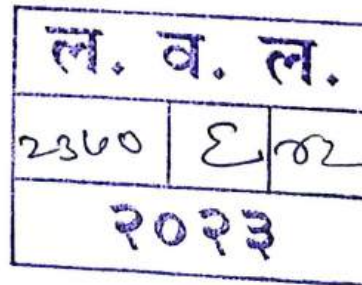 ल. व. ल.
२३७० ६ ४२
२०२३